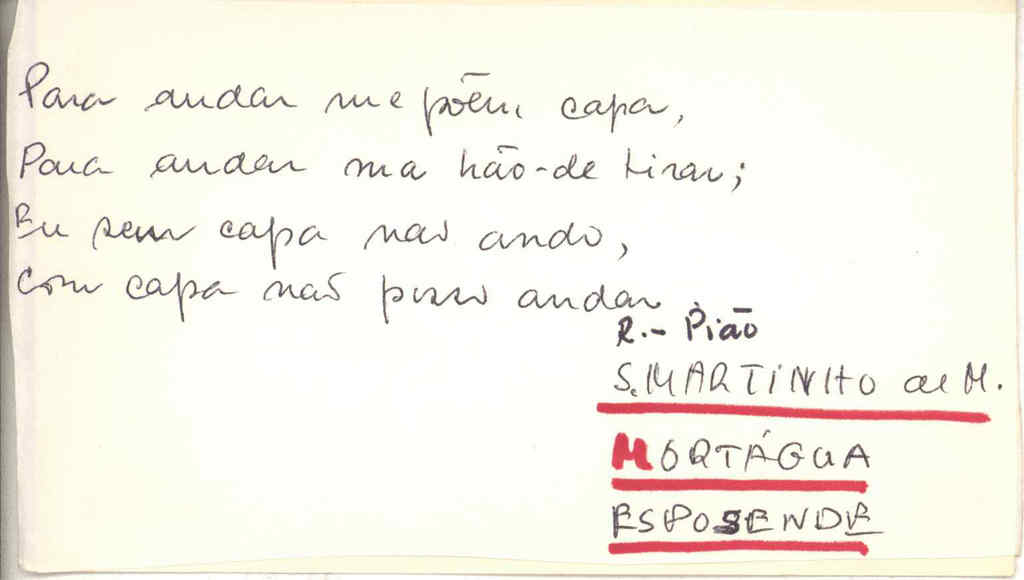 Para andar me põem capa,
Para andar ma hão-de tirar;
Eu sem capa não ando,
Com capa não posso andar.
R.- Pião
S. MARTINHO de M.
MORTÁGUA
ESPOSENDE